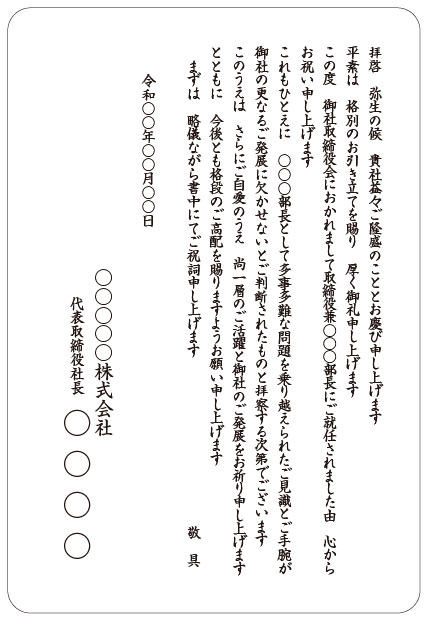 拝啓　弥生の候　貴社益々ご隆盛のこととお慶び申し上げます
平素は　格別のお引き立てを賜り　厚く御礼申し上げます
この度　御社取締役会におかれまして取締役兼〇〇〇部長にご就任されました由　心から
お祝い申し上げます
これもひとえに　〇〇〇部長として多事多難な問題を乗り越えられたご見識とご手腕が
御社の更なるご発展に欠かせないとご判断されたものと拝察する次第でございます
このうえは　さらにご自愛のうえ　尚一層のご活躍と御社のご発展をお祈り申し上げます
とともに　今後とも格段のご高配を賜りますようお願い申し上げます
まずは　略儀ながら書中にてご祝詞申し上げます
敬　具
令和〇〇年〇〇月〇〇日
〇〇〇〇〇株式会社
代表取締役社長　〇〇〇〇